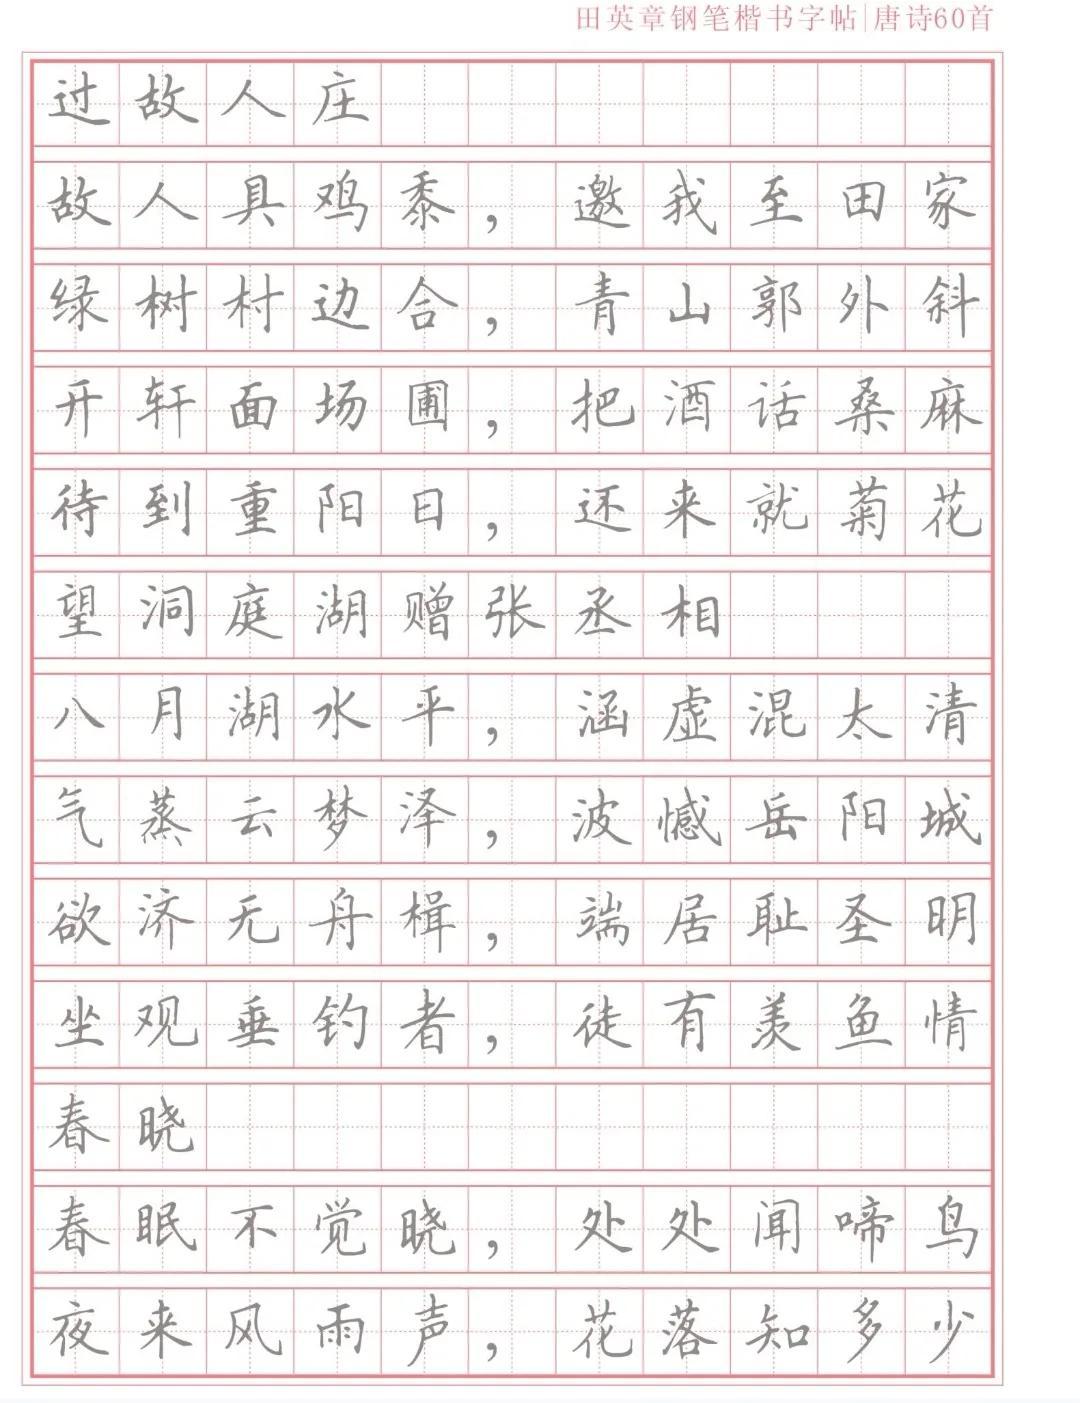 田英章钢笔楷书字帖|唐诗60首
过故人庄
故人具鸡黍，邀我至田家
绿树村边合，青山郭外斜
开轩面场圃，把酒话桑麻
待到重阳日，还来就菊花
望洞庭湖赠张丞相
八月湖水平，涵虚混太清
气蒸云梦泽，波憾岳阳城
欲济无舟楫，端居耻圣明
坐观垂钓者，徒有羡鱼情
春晓
春眠不觉晓，处处闻啼鸟
夜来风雨声，花落知多少